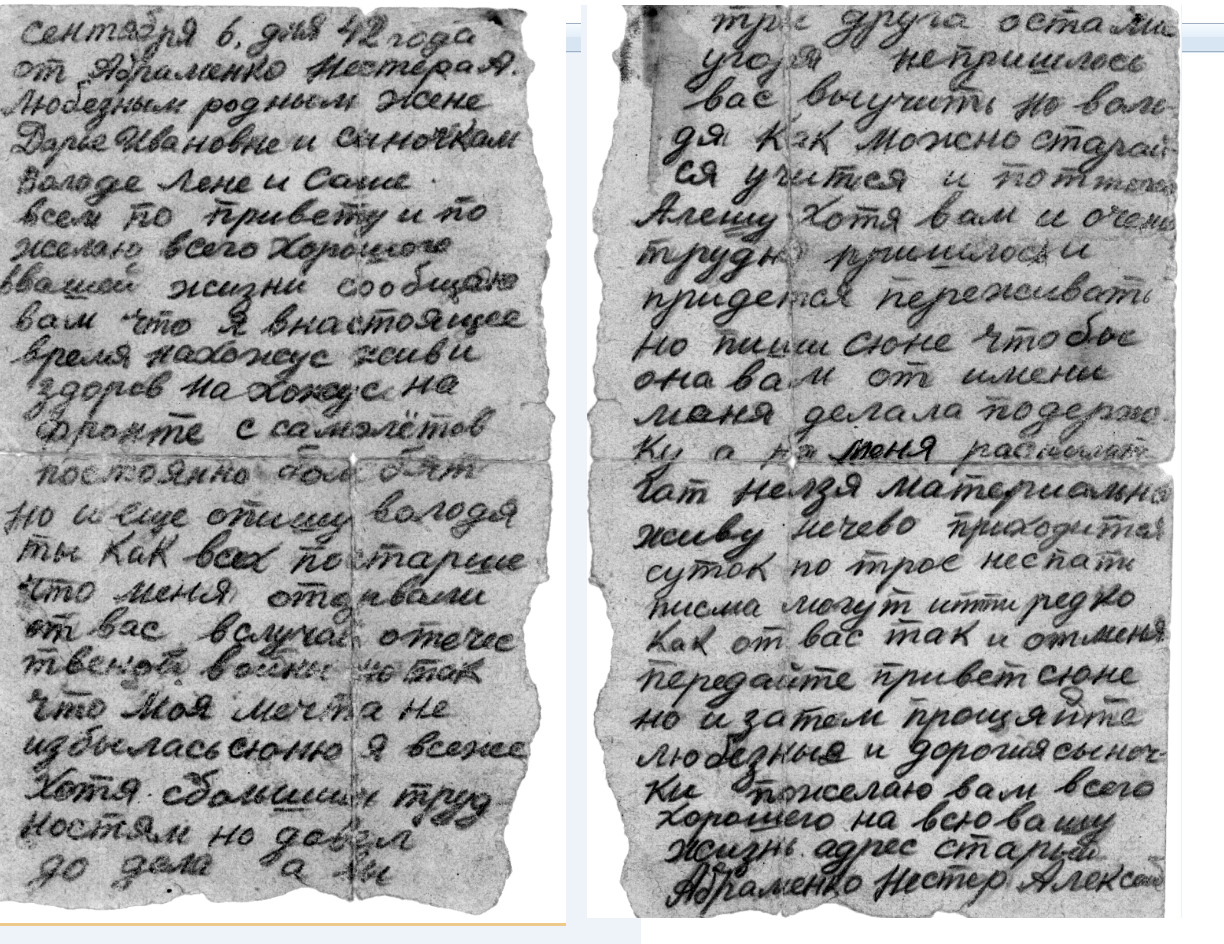 сентября 6, дня 42 года
от Абраменко Нестера А.
Любезным родным жене
Дарье Ивановне и синочкам
Володе Лене и Саше
всем по привету и по
желаю всего хорошого
ввашей жизни сообщаю
вам что я внастоящее
время нахожус жив и
здоров на хожус на
фронте с самолётов
постоянно бом бят
но и еще опишу володя
ты как всех постарше
что меня отозвали
от вас вслучаи отечес
твеной войни но так
что моя мечта не
избылась сюню я всеже
Хотя сбольшим труд
ностям но довёл
до дела а вы
трое друга остали
угодя непришлось
вас выучить но воло
дя как можно старай
ся учится и
Алешу хотя вам и очень
трудно пришлось и
придется переживать
но пиши сюне чтобы
она вам от имени
меня делала подержо
ку а на меня расчиты
ват нелзя материально
живу нечево приходится
суток по трое неспати
писма могут итти редко
как от вас так и отменя
передайте привет сюне
но и затем прощяйте
любезныя и дорогия сыноч-
ки пожелаю вам всего
хорошего на всю вашу
жизнь. адрес старый
Абраменко Нестер Алексеев